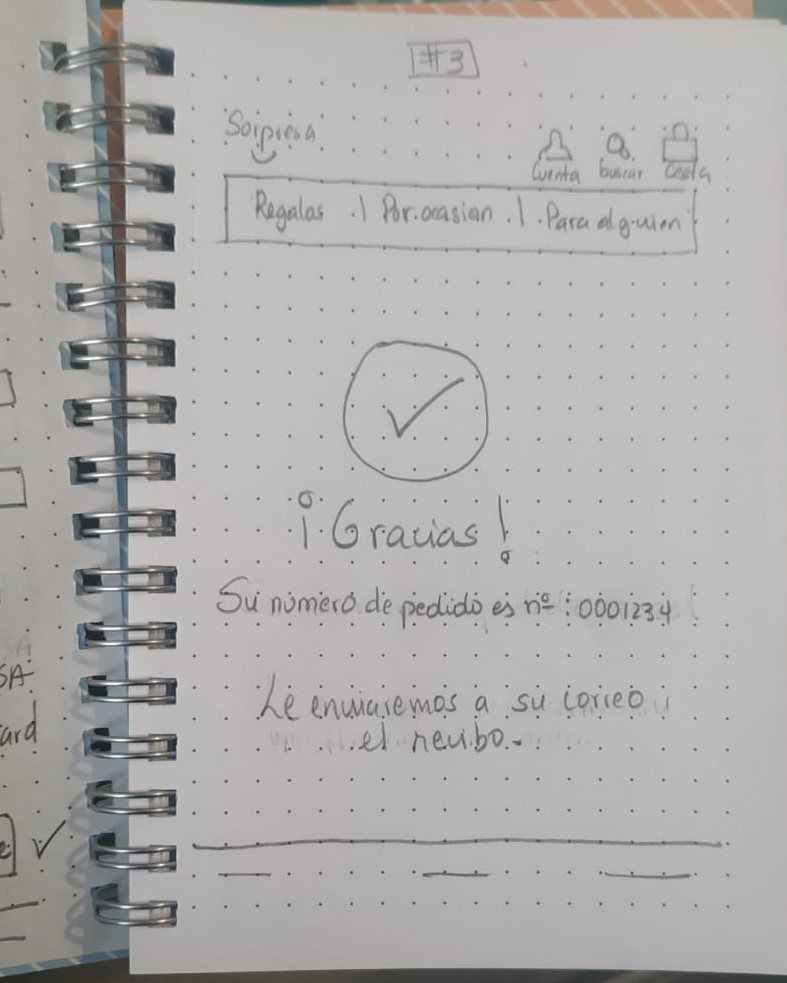 #3
Sorpresa
Cuenta buscar Cesta
Regalos | Por ocasion | Para alguien
¡Gracias!
Su número de pedido es nº: 0001234
Le enviaremos a su correo
el recibo.
SA
ard
e